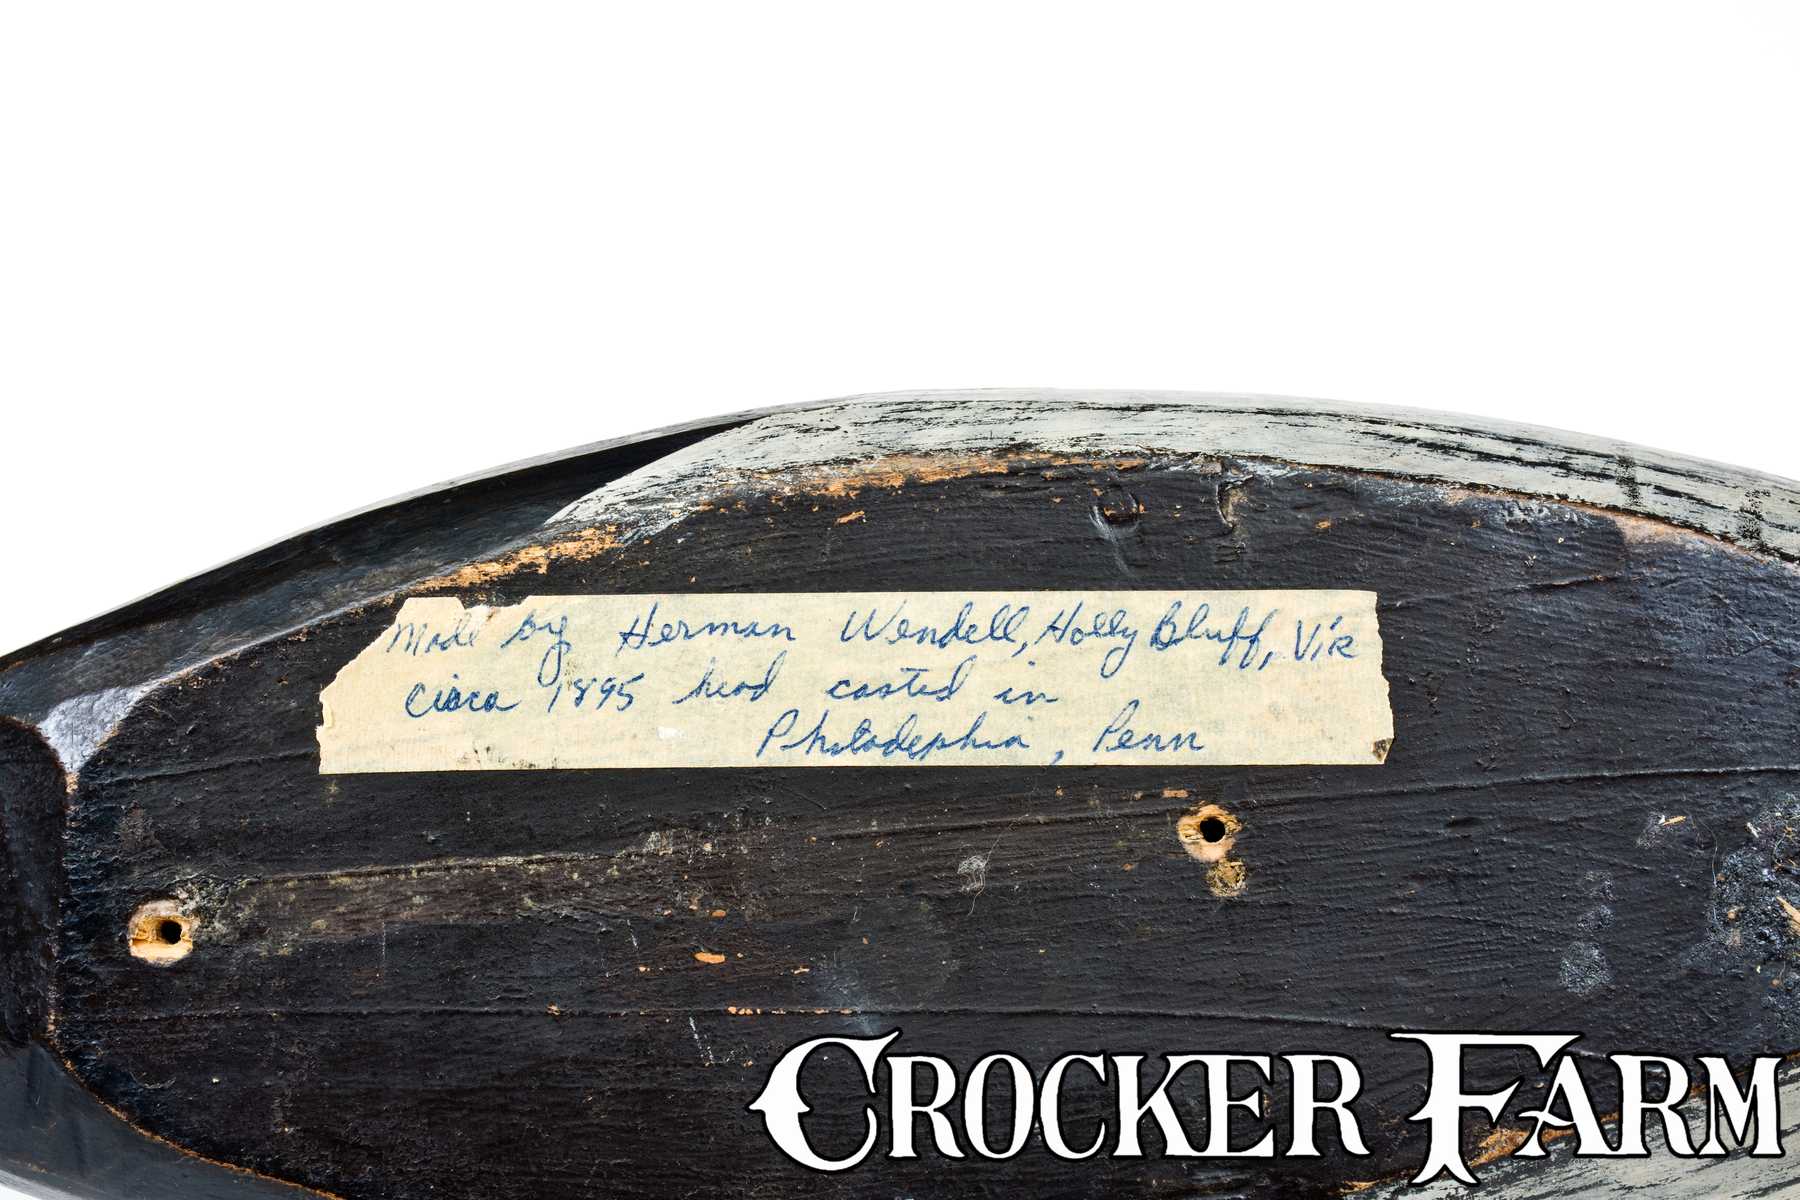 Made by Herman Wendell, Holly Bluff, Vir
Circa 1895 head casted in
Philadephia, Penn
CROCKER FARM